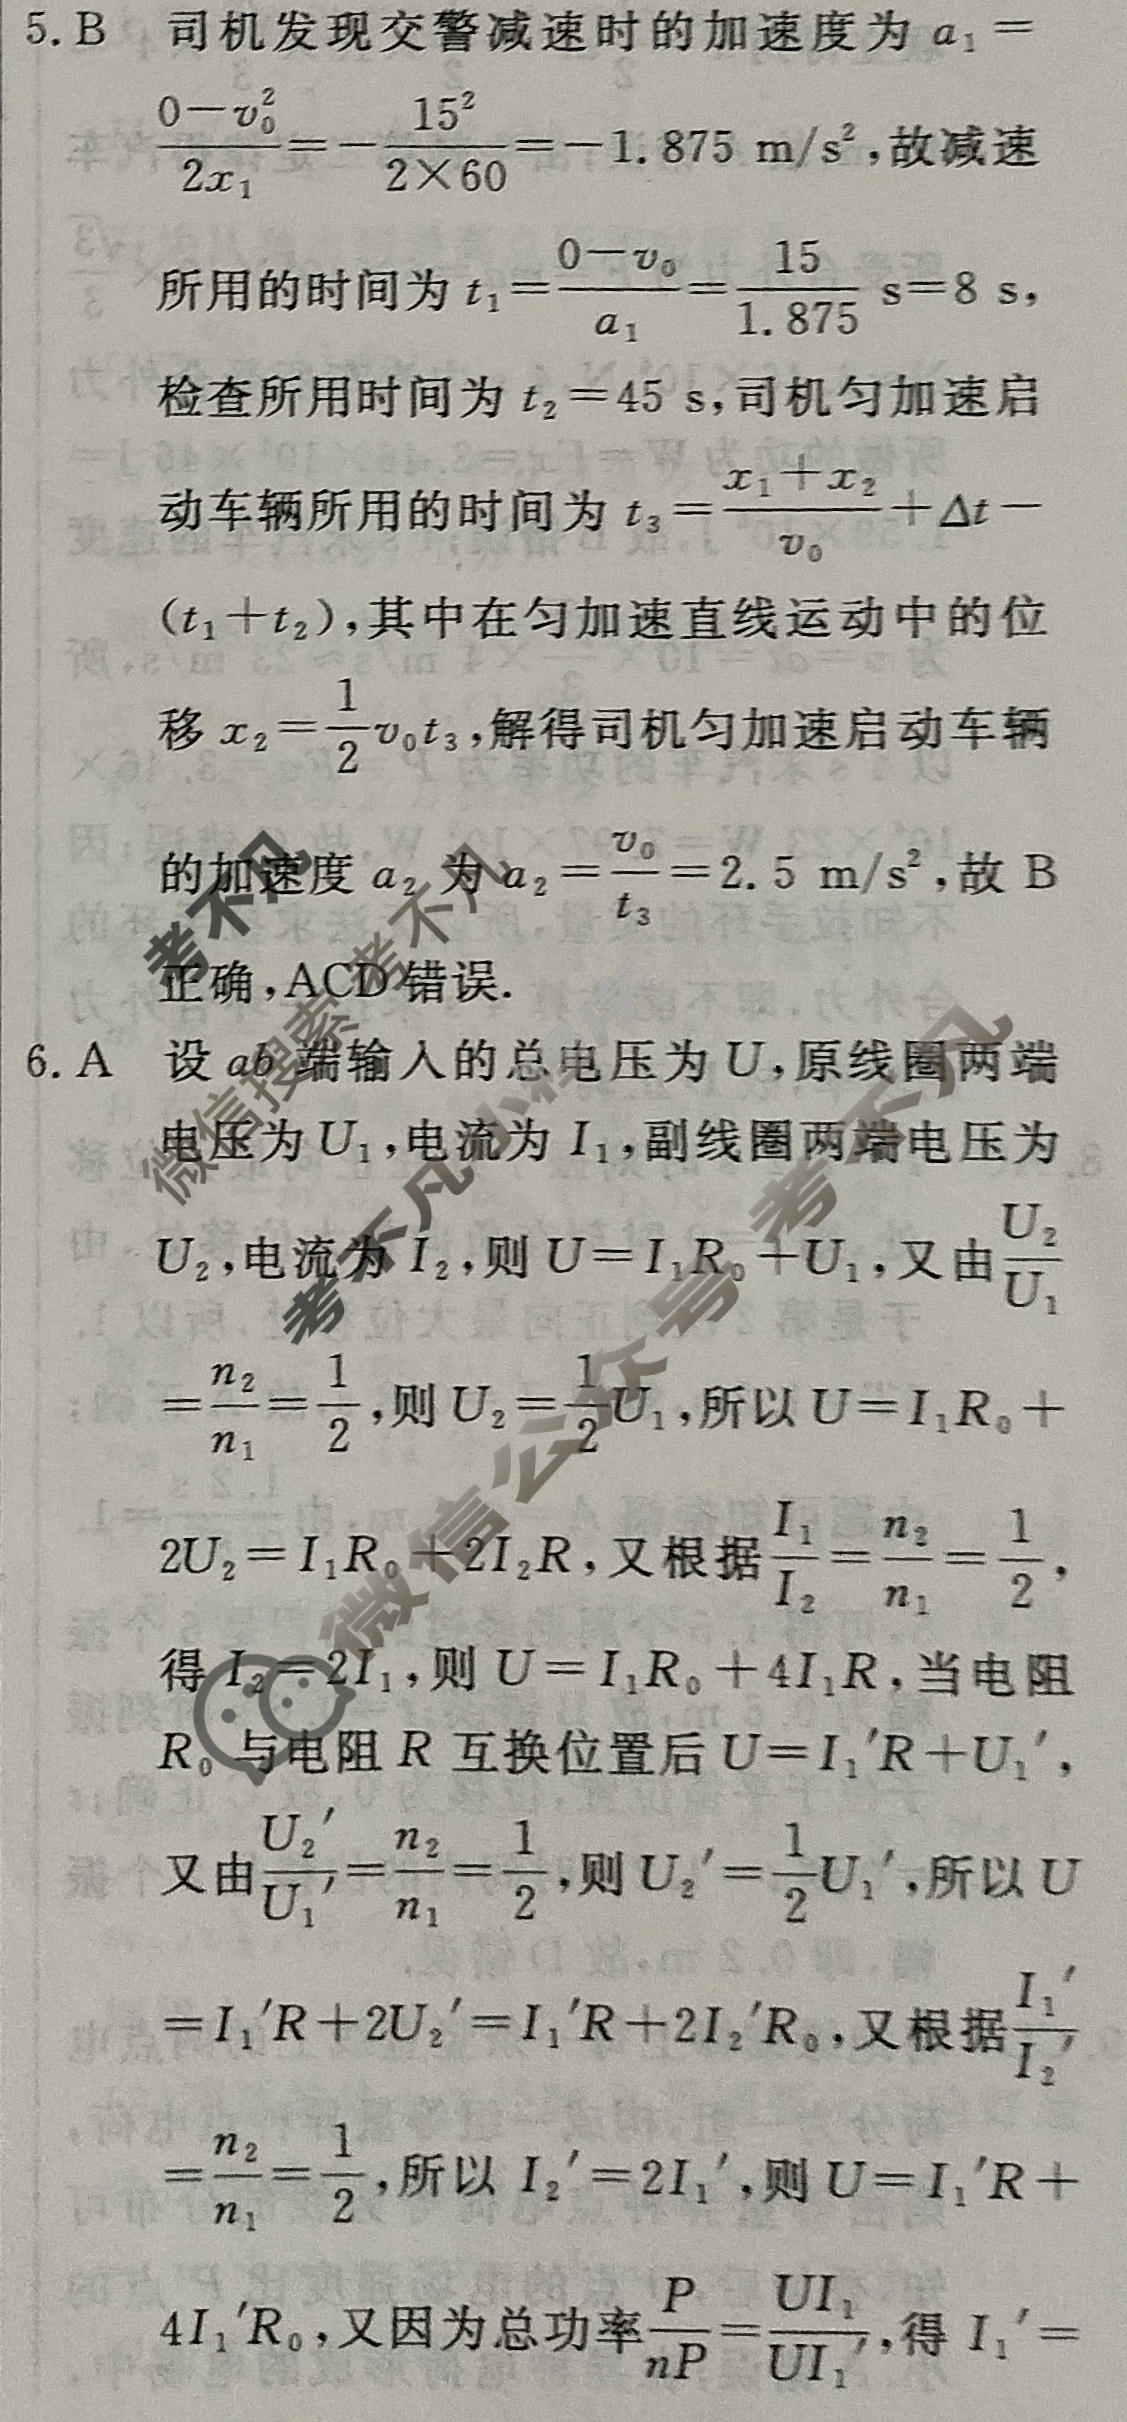 5. B 司机发现交警减速时的加速度为 a₁ =
(0−v₀²)/(2x₁) = −15²/(2×60) = −1.875 m/s²,故减速
所用的时间为 t₁ = (0−v₀)/a₁ = 15/1.875 s = 8 s,
检查所用时间为 t₂ = 45 s,司机匀加速启
动车辆所用的时间为 t₃ = (x₁+x₂)/v₀ + Δt −
(t₁+t₂),其中在匀加速直线运动中的位
移 x₂ = 1/2 v₀t₃,解得司机匀加速启动车辆
的加速度 a₂ 为 a₂ = v₀/t₃ = 2.5 m/s²,故 B
正确,ACD 错误.
6. A 设 ab 端输入的总电压为 U,原线圈两端
电压为 U₁,电流为 I₁,副线圈两端电压为
U₂,电流为 I₂,则 U = I₁R₀ + U₁,又由 U₂/U₁
= n₂/n₁ = 1/2,则 U₂ = 1/2 U₁,所以 U = I₁R₀ +
2U₂ = I₁R₀ + 2I₂R,又根据 I₁/I₂ = n₂/n₁ = 1/2,
得 I₂ = 2I₁,则 U = I₁R₀ + 4I₁R,当电阻
R₀ 与电阻 R 互换位置后 U = I₁′R + U₁′,
又由 U₂′/U₁′ = n₂/n₁ = 1/2,则 U₂′ = 1/2 U₁′,所以 U
= I₁′R + 2U₂′ = I₁′R + 2I₂′R₀,又根据 I₁′/I₂′
= n₂/n₁ = 1/2,所以 I₂′ = 2I₁′,则 U = I₁′R +
4I₁′R₀,又因为总功率 P/(nP) = UI₁/(UI₁′),得 I₁′ =
考不凡
微信搜索 考不凡
考不凡
微信公众号 考不凡